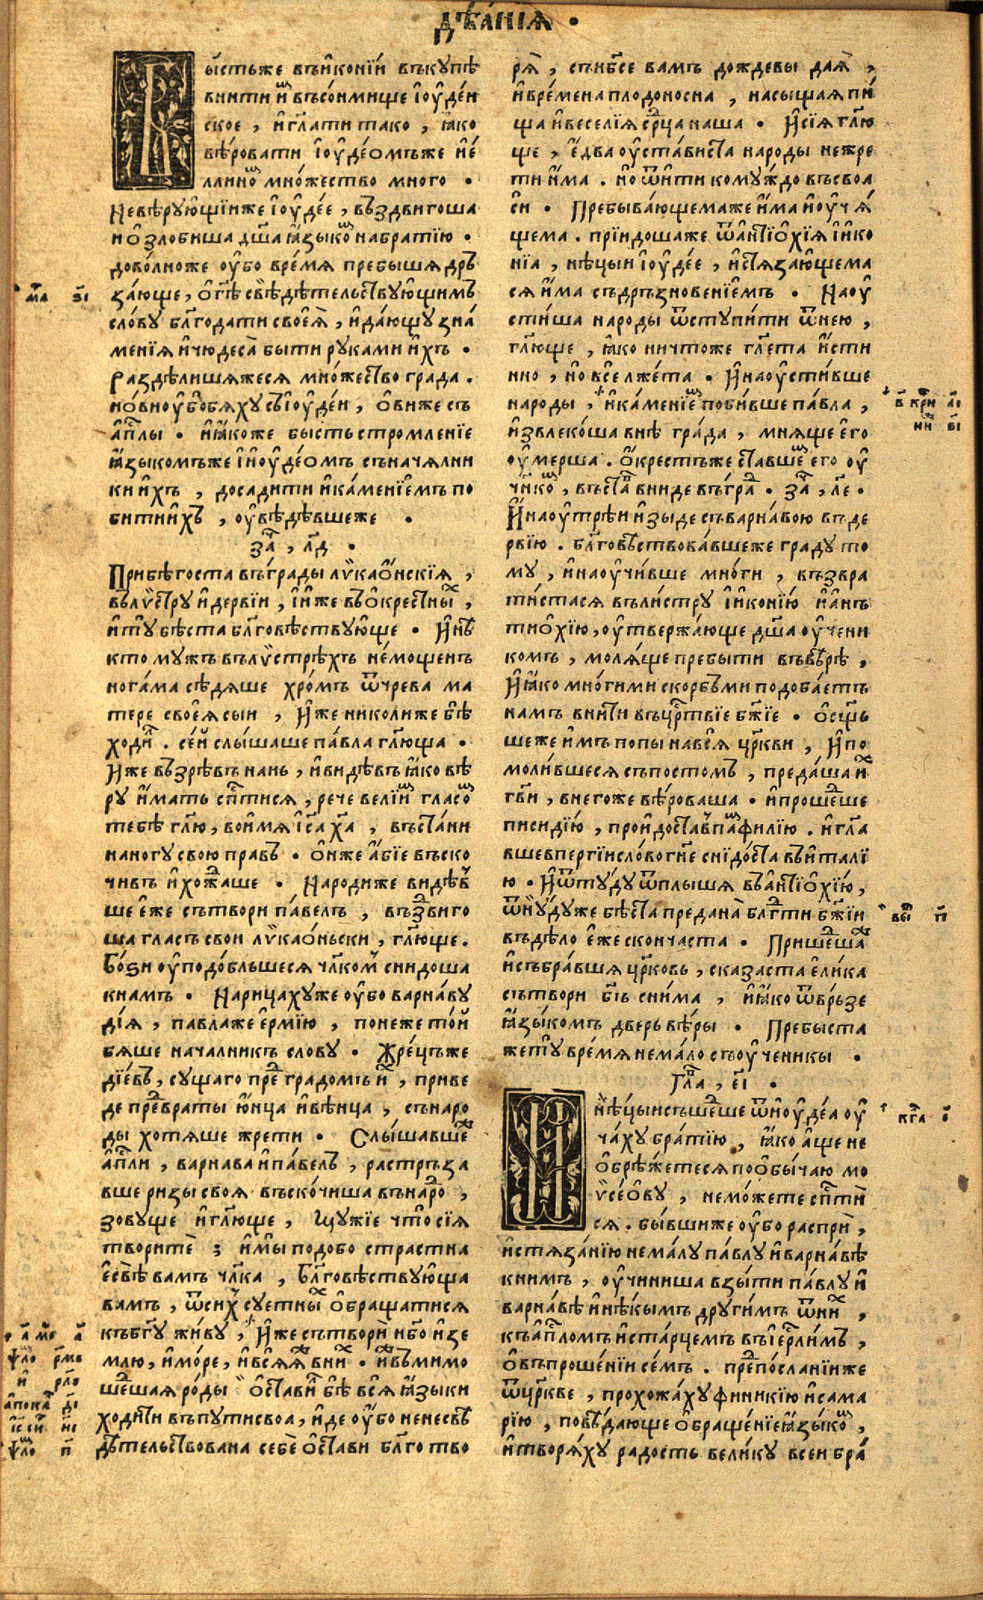 дѣꙗ́нїѧ •
ы́стьже въи҆ко́нїи въкꙋпѣ
внити и҆ въсонмище і҆ꙋде́и
ское , и҆гл҃ати тако , ꙗ҆ко
вѣ́ровати і҆ꙋде́омъже и҆е́
ллино̑ мно́жество много •
Невѣ́рꙋющїиже і҆ꙋде́е , въздвигоша
и҆ѻ҆зло́биша дш҃а ꙗ҆зы́ко̑ набра́тїю •
дово́лноже ᲂу҆́бо вре́мѧ пребышѧ дръ
за́юще , ѻ҆гд҃ѣ свѣдѣтельствꙋ́ющимъ
сло́вꙋ блг҃ода́ти своеѧ̀ , и҆даю́щꙋ зна́
менїѧ и҆чюдеса̀ быти рꙋками и҆́хъ •
Раздѣлишѧжесѧ мно́жество града .
и҆ѻ҆́виᲂу҆́бо бѧ́хꙋ съі҆ꙋде́и , ѻ҆́виже съ
а҆пс҃лы • и҆ꙗ́коже бысть стромленїе
ꙗ҆зы́комъже и҆і҆ꙋде́омъ сънача́лни
ки и҆́хъ , досади́ти и҆ка́менїемъ по
бити и҆́хъ , ᲂу҆вѣ́дѣвшеже •
за҃ , л҃д •
Прибѣго́ста въгра́ды лѷкаѻ́нскїѧ ,
вълѷ́стрꙋ и҆дервїи , и҆и҆́же въѻ҆кре́стны̑ ,
и҆тꙋ̀ бѣ́ста блг҃овѣствꙋ́юще • И҆нѣ́
кто мꙋжъ вълѷ́стрѣхъ не́мощенъ
нога́ма сѣдѧ́ше хро́мъ ѿчрева ма
тере своеѧ̀ сыи , И҆́же николиже бѣ̀
ходи́л̑ . се́й слы́шаше па́вла гл҃юща •
И҆́же възрѣ́въ нань , и҆ви́дѣвъ ꙗ҆́ко вѣ́
рꙋ и҆́мать сп҃сти́сѧ , рече ве́лїи̑ гласо̑
тебѣ̀ гл҃ю , воимѧ і҆с҃а хр҃а , въста́ни
наногꙋ̀ свою̀ пра́въ • Ѻ҆́нже а҆́бїе въско
чивъ и҆ хожда́ше • Народиже ви́дѣв̑
ше е҆́же сътвори̂ па́велъ , въздвиго
ша гласъ сво́и лѷкаѻ́ньски , гл҃юще .
Бо́ѕи ᲂу҆подо́бльшесѧ чл҃ко́м̑ снидо́ша
кна́мъ • Нарица́хꙋже ᲂу҆́бо варна́вꙋ
ді́ѧ , па́влаже е҆рмїю , поне́же то́й
бѧ́ше нача́лникъ сло́вꙋ • Жре́цъже
ді́евъ , сꙋ́щаго пре̑ гра́домъ и̑ , приве
де пре̑врата̀ ю҆нца̀ и҆вѣнца̀ , съ наро
ды̀ хотѧ́ше жре́ти • Слы́шавше̑
а҆пс҃ли , варна́ва и҆па́велъ , растръза
вше ризы своѧ̀ въско́чиша въ наро̑ ,
зовꙋще и҆гл҃юще , Мꙋ́жїе что̀ сїѧ̀
творитѐ ; и҆мы̀ подобостра́стна
е҆свѣ̀ вамъ чл҃ка , Блг҃овѣствꙋ́юща
вамъ , ѿси́х̑ сꙋ́етны̑ ѻ҆браща́тисѧ
къбг҃ꙋ жи́вꙋ , И҆́же сътвори̂ не҃бо и҆зе
млю , и҆мо́ре , и҆всѧ̑ ꙗ҆́же вни̑ • и҆́же въмимо
ше́дшаѧ ро́ды ѻ҆ста́ви̑ бѣ̀ всѧ̑ ꙗ҆зы́ки
ходи́ти въпꙋти̂ своѧ , и҆́де ᲂу҆́бо ненесвѣ
дѣ́тельствована себѐ ѻ҆ста́ви бл҃го тво
рѧ̀ , съ нб҃се вамъ дожде́вы даѧ̀ ,
и҆вре́мена плодоно́сна , насыща́ѧ пи́
ща и҆весе́лїѧ ср҃ца на́ша • И҆сїѧ̀ гл҃ю
ще , е҆два̀ ᲂу҆ста́виста наро́ды нежре
ти и҆́ма . но̀ ѿити комꙋ́ждо въсвоѧ
си̂ • Пребыва́ющемаже и҆́ма и҆ᲂу҆чѧ́
щема . прїидо́шаже ѿа҆нтїѻхі́ѧ и҆и҆ко
нїѧ , нѣ́цыи і҆ꙋде́е , и҆стѧза́ющема
сѧ и҆́ма съдръзнове́нїемъ • Наᲂу҆
сти́ша наро́ды ѿстꙋпи́ти ѿнею̀ ,
гл҃юще , ꙗ҆́ко ничто́же гл҃ета и҆́сти
нно , но̀ всѐ лже́та • И҆наᲂу҆сти́вше
наро́ды , и҆ка́менїе̑ поби́вше па́вла ,
и҆звлеко́ша внѣ̀ гра́да , мнѧ́ще е҆го̀
ᲂу҆́мерша . Ѻ҆́крестъже ста́вше̑ е҆го ᲂу҆
чн҃ко̑ , въста̑ вниде въгра̑ • за҃ , л҃е •
И҆наᲂу҆́трїи и҆зы́де съварна́вою въ де
рвїю . блг҃овѣствова́вшеже гра́дꙋ то
мꙋ , и҆наᲂу҆чи́вше мно́ги , възвра
ти́стасѧ въли́стрꙋ и҆и҆ко́нїю и҆а҆н
тиѻхі́ю , ᲂу҆твержа́юще дш҃а ᲂу҆чени
комъ , молѧ́ще пребы́ти въвѣ́рѣ ,
И҆ꙗ́ко мно́гими ско́рбъми подоба́етъ
намъ вни́ти въцр҃твїе бж҃їе • Ѻ҆свѧщь
шеже и҆́мъ попы̀ навсѧ̑ цр҃кви , И҆по
моли́вшесѧ съпосто́мъ , преда́ша и҆̑
гв҃и , внего́же вѣ́роваша • и҆проше̑ше
писиді́ю , прои̂доста̑ впамфилі́ю . и҆гл҃а
вшевпергі́и сло́во гн҃е снидо́ста въи҆та́лї
ю • И҆ѿтꙋ́дꙋ ѿплы́шѧ въа҆нтїѻхі́ю ,
ѿню́дꙋже бѣ́ста преда́на̀ блг҃ти бж҃їи
въдѣ́ло е҆́же скончаста • Прише̑ша̑
и҆събра́вшѧ цр҃ковь , сказа́ста е҆ли́ка
сътвори̂ бг҃ъ сни́ма , и҆ꙗ́ко ѿвръ́зе
ꙗ҆зы́комъ дверь вѣ́ры • Пребыста
жетꙋ̀ вре́мѧ нема́ло съᲂу҆ченикы̀ •
гла҃ , е҃і •
нѣ́цыи съше̑ше ѿі҆ꙋде́ѧ ᲂу҆
ча́хꙋ бра́тїю , ꙗ҆́ко а҆́ще не
ѻ҆брѣ́жетесѧ поѻ҆бы́чаю мо
ѷсе́ѻвꙋ , немо́жете сп҃сти̂
сѧ . бы́вшиже ᲂу҆́бо ра́спри̂ ,
и҆стѧза́нїю нема́лꙋ па́влꙋ и҆варна́вѣ
книмъ , ᲂу҆чини́ша взы́ти па́влꙋ и҆
варна́вѣ и҆нѣ́кымъ дрꙋги́мъ ѿни̑ ,
къа҆пс҃ломъ и҆ста́рцемъ въі҆ер҃ли́мъ ,
ѻ҆въпроше́нїи се́мъ . пре̑по́сланїиже
ѿцр҃кве , прохожа́хꙋ финикі́ю и҆сама
рі́ю , повѣ́дающе ѻ҆браще́нїе ꙗ҆зы́ко̑ ,
и҆творѧ́хꙋ ра́дость ве́ликꙋ все́и бра́